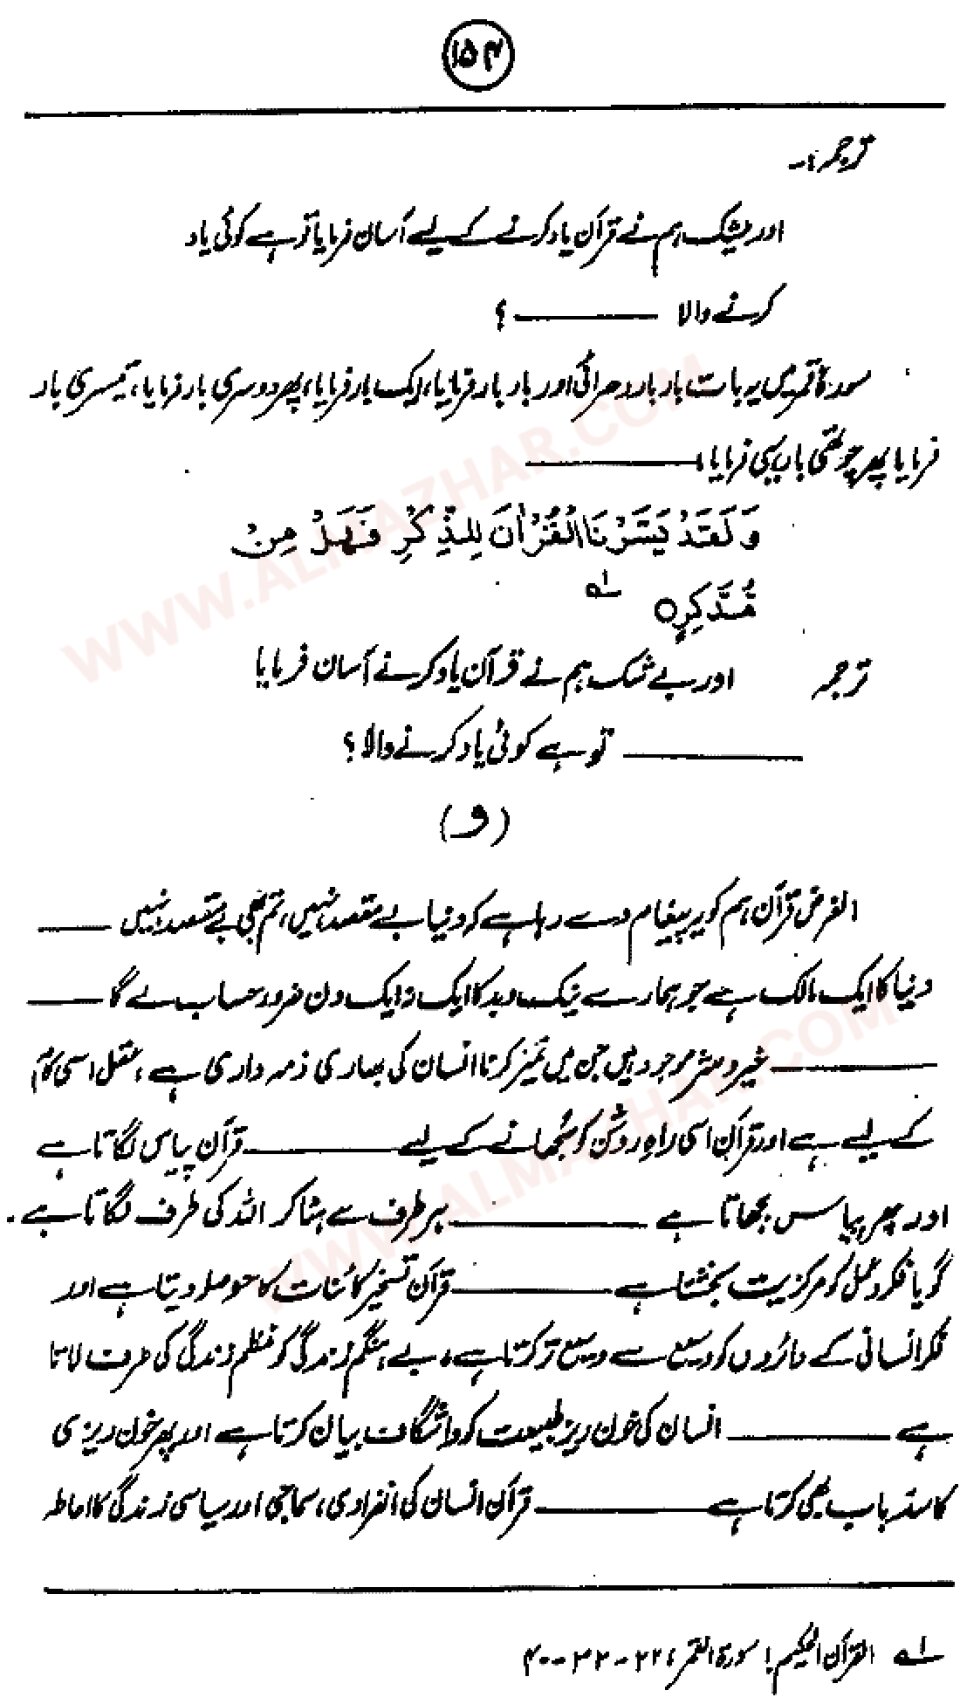 ۱۵۴
ترجمہ :۔
اور بیشک ہم نے قرآن یاد کرنے کے لیے آسان فرمایا تو ہے کوئی یاد
کرنے والا ——— ؟
سورۂ قمر میں یہ بات بار بار دھرائی اور بار بار فرمایا، ایک بار فرمایا، پھر دوسری بار فرمایا، تیسری بار
فرمایا پھر چوتھی بار یہی فرمایا، ———
وَلَقَدْ يَسَّرْنَا الْقُرْاٰنَ لِلذِّكْرِ فَهَلْ مِنْ
مُّدَّكِرٍ ○ ؎۱
ترجمہ اور بے شک ہم نے قرآن یاد کرنے آسان فرمایا
——— تو ہے کوئی یاد کرنے والا ؟
(و)
الغرض قرآن ہم کو یہ پیغام دے رہا ہے کہ دنیا بے مقصد نہیں، تم بھی بے مقصد نہیں ———
دنیا کا ایک مالک ہے جو ہمارے نیک و بد کا ایک نہ ایک دن ضرور حساب لے گا ———
——— خیر و شر موجود ہیں جن میں تمیز کرنا انسان کی بھاری ذمہ داری ہے، عقل اسی کام
کے لیے ہے اور قرآن اسی راہِ روشن کو سُجھانے کے لیے ——— قرآن پیاس لگاتا ہے
اور پھر پیاس بجھاتا ہے ——— ہر طرف سے ہٹا کر اللہ کی طرف لگاتا ہے۔
گویا فکر و عمل کو مرکزیت بخشتا ہے ——— قرآن تسخیر کائنات کا حوصلہ دیتا ہے اور
فکر انسانی کے دائروں کو وسیع سے وسیع تر کرتا ہے، بے ہنگم زندگی کو منظم زندگی کی طرف لاتا
ہے ——— انسان کی خون ریز طبیعت کو واشگاف بیان کرتا ہے اور پھر خون ریزی
کا سدِ باب بھی کرتا ہے ——— قرآن انسان کی انفرادی، سماجی اور سیاسی زندگی کا احاطہ
؎۱ القرآن الحکیم؛ سورۃ القمر؛ ۲۲-۳۲-۴۰
WWW.ALMAZHAR.COM
WWW.ALMAZHAR.COM